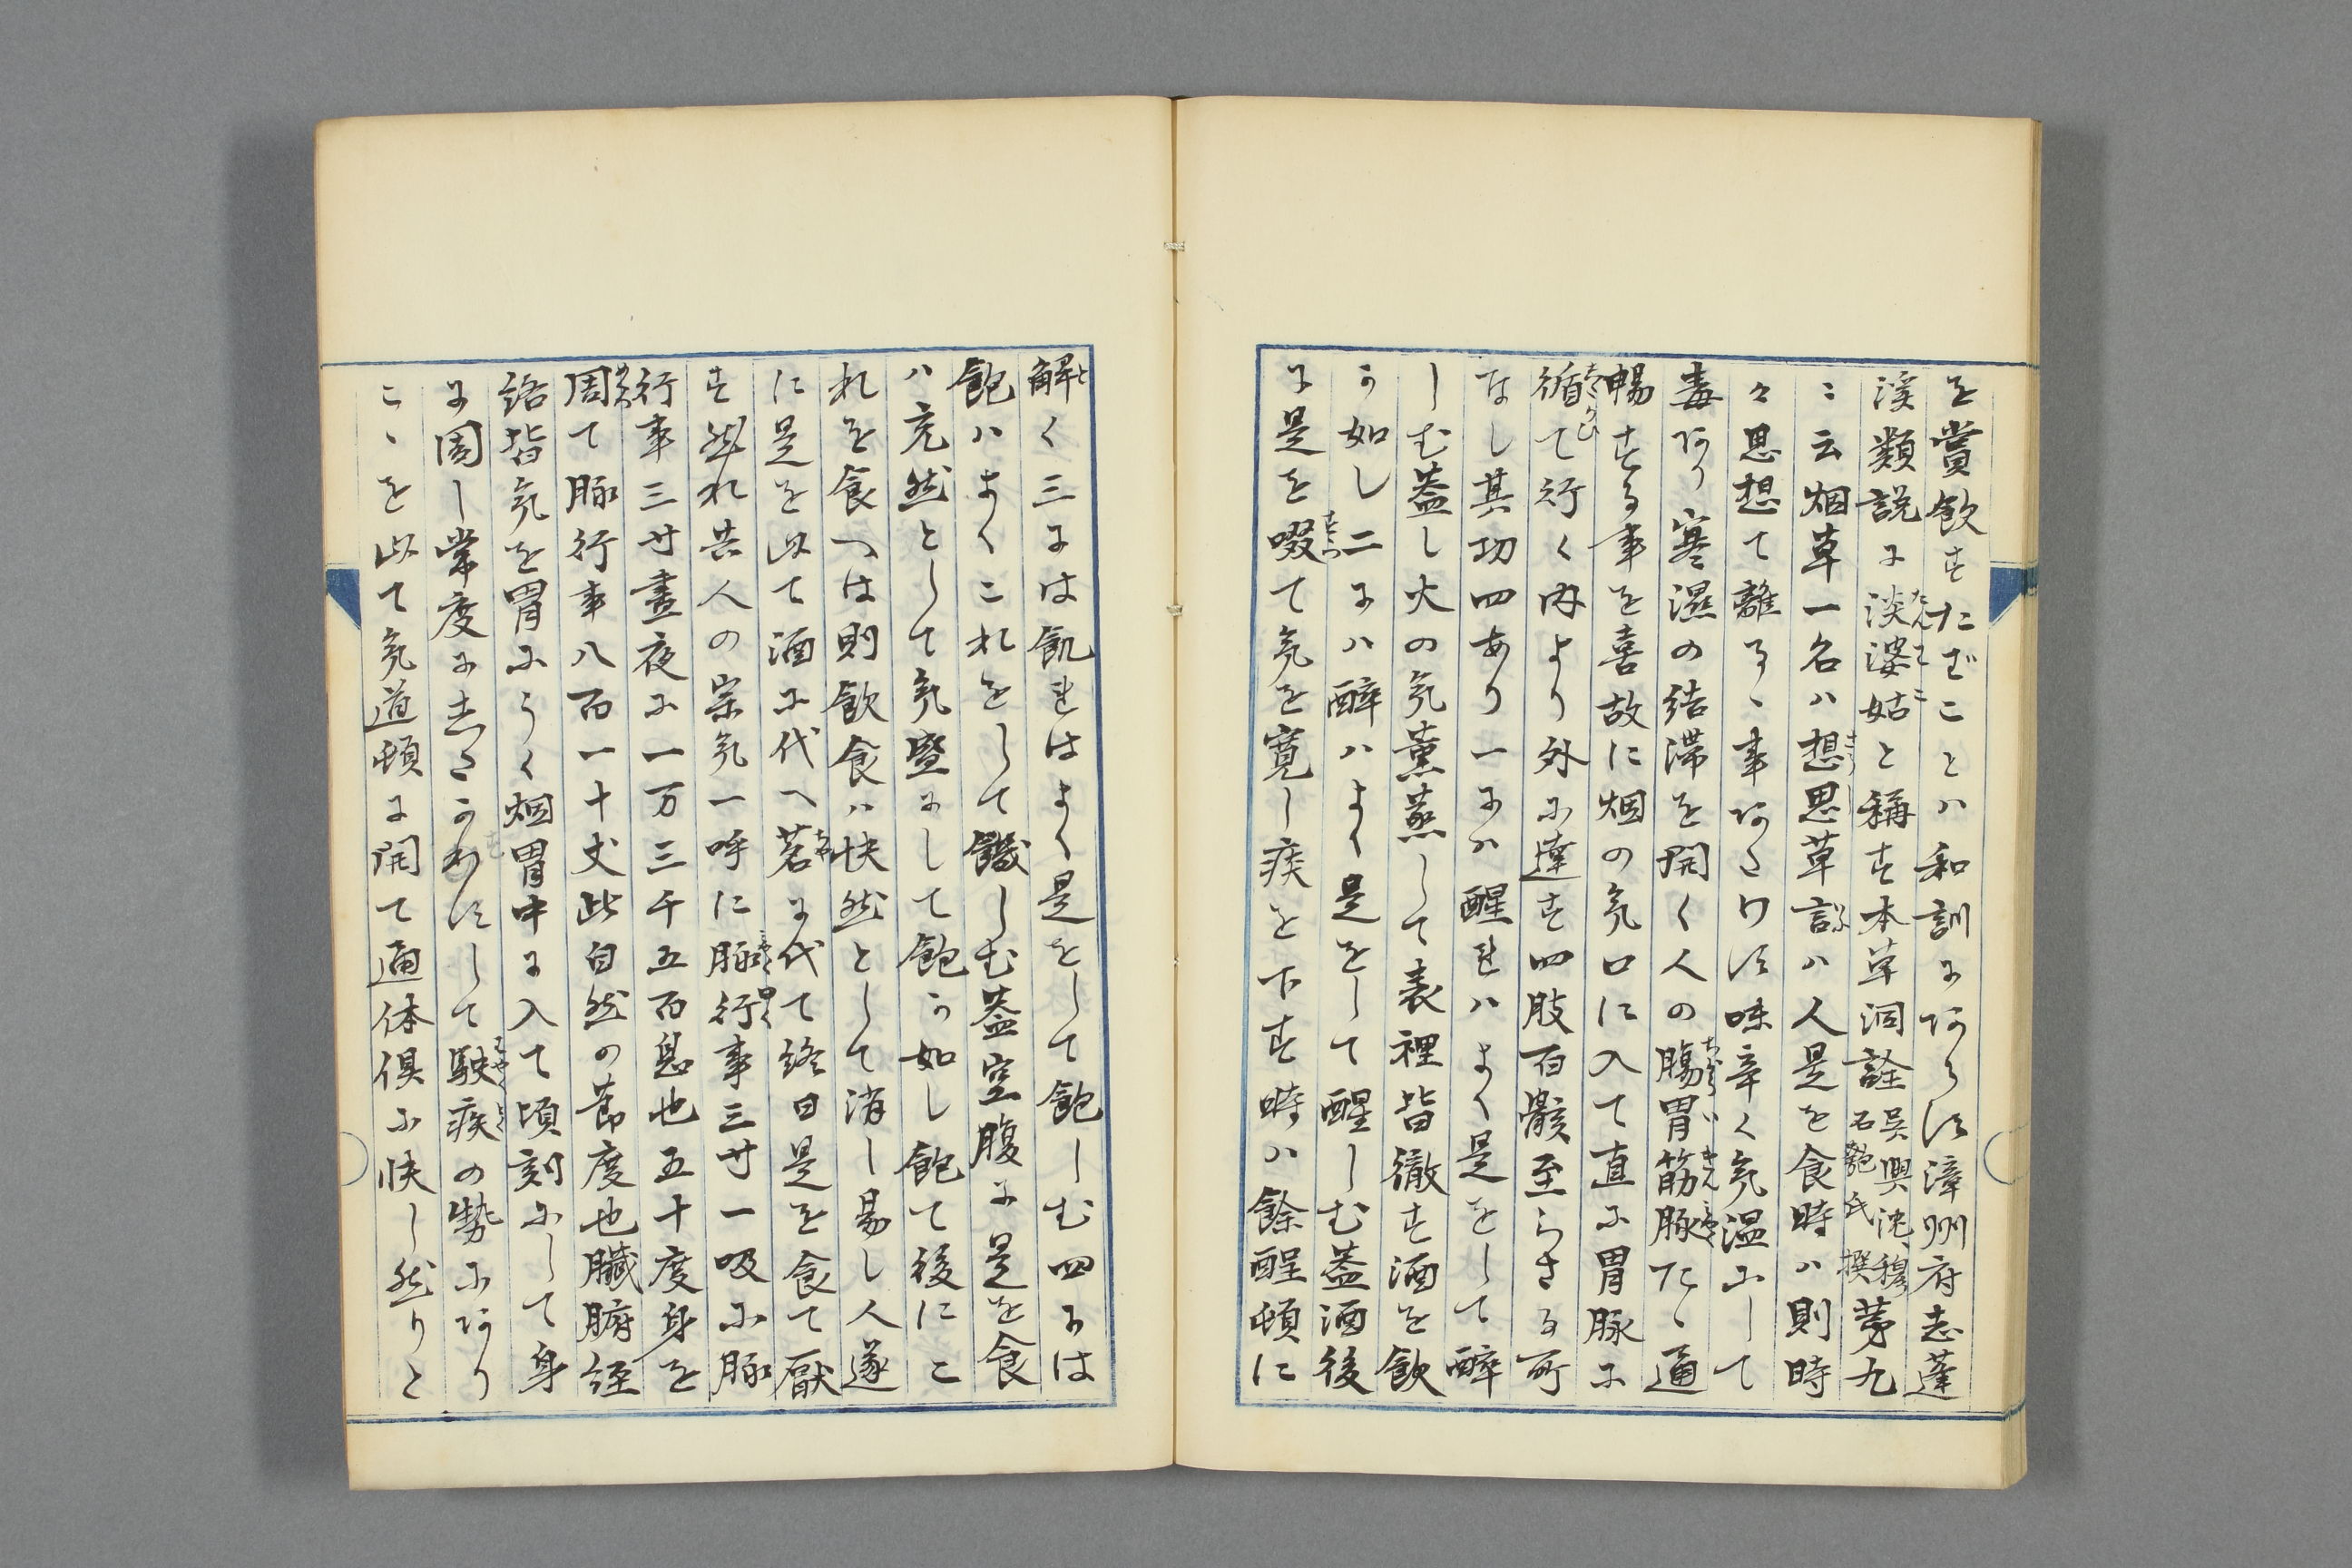 を賞飲すたばことハ和訓にあらす漳州府志蓬
渓類説に淡婆姑と稱す本草洞詮呉興沈穆石匏氏撰第九
ニ云烟草一名ハ想思草言ハ人是を食時ハ則時
々思想て離るゝ事あたワす味辛く気温にして
毒あり寒濕の結滞を開く人の腸胃筋脉たゝ通
暢する事を喜故に烟の気口に入て直に胃脉に
循て行く内より外に達す四肢百骸至らさる所
なし其功四あり一にハ醒れハよく是をして醉
しむ蓋し火の気薫蒸して表裡皆徹す酒を飲
か如し二にハ醉ハよく是をして醒しむ蓋酒後
に是を啜て気を寛し痰を下す時ハ餘酲頓に
解く三には飢れはよく是をして飽しむ四には
飽ハよくこれをして饑しむ蓋空腹に是を食
ハ充然として気盛にして飽か如し飽て後にこ
れを食へは則飲食ハ快然として消し易し人遂
に是を以て酒に代へ茗に代て終日是を食て厭
す然れ共人の宗気一呼に脉行事三寸一吸に脉
行事三寸晝夜に一万三千五百息也五十度身を
周て脉行事八百一十丈此自然の節度也臓腑経
絡皆気を胃にうく烟胃中に入て頃刻にして身
に周し常度にしたかわすして駛疾の勢にあり
こゝを以て気道頓に開て通体倶に快し然りと